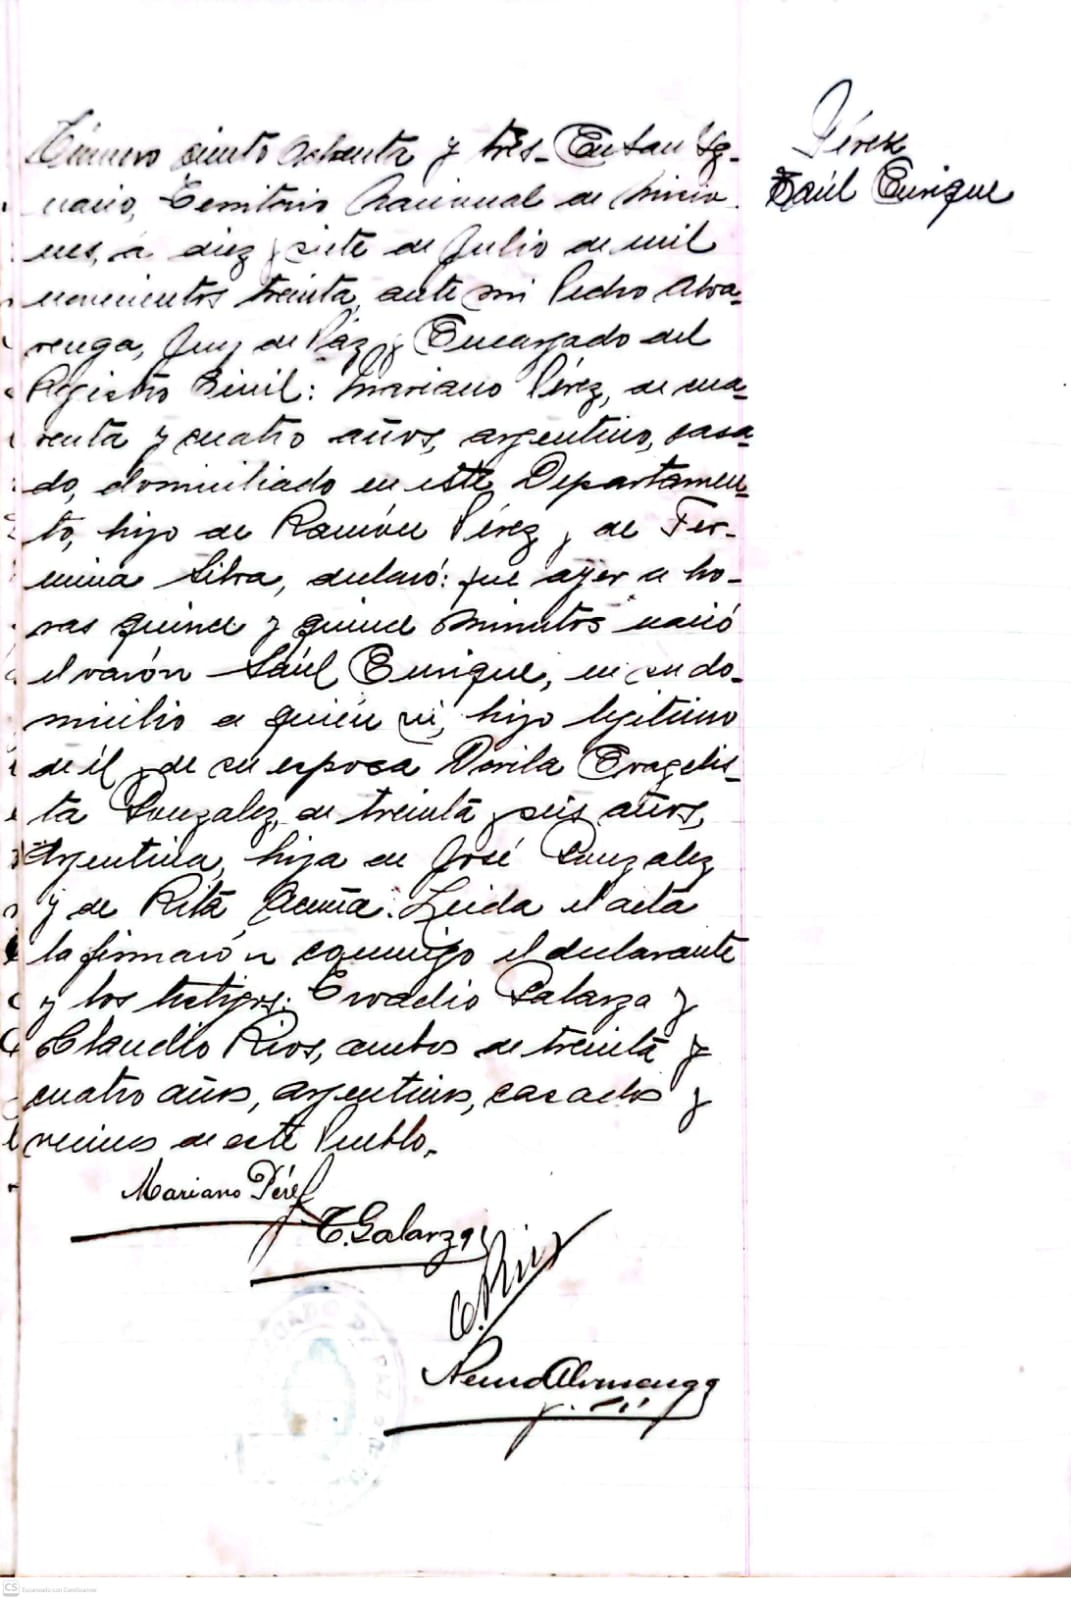 Pérez
Saúl Enrique
Número ciento ochenta y tres- En San Ig-
nacio, Territorio Nacional de Misio
nes, a diez y siete de Julio de mil
novecientos treinta, ante mi Pedro Alva-
renga, Juez de Paz y Encargado del
Registro Civil: Mariano Pérez, de cua-
renta y cuatro años, argentino, casa-
do, domiciliado en este Departamen-
to, hijo de Ramón Pérez y de Fer-
mina Silva, declaró: que ayer a ho-
ras quince y quince minutos nació
el varón Saúl Enrique, en su do-
micilio a quién vi, hijo legitimo
de él y de su esposa Dorila Evagelis-
ta Gonzalez, de treinta y seis años,
Argentina, hija de José Gonzalez
y de Rita Acuña. Leida el acta
la firmaron conmigo el declarante
y los testigos: Galarza y
Claudio Rios, ambos de treinta y
cuatro años, argentinos, casados y
vecinos de este Pueblo.
Mariano Pérez
Galarza
C. Rios
Alvarenga
Escaneado con CamScanner
CS